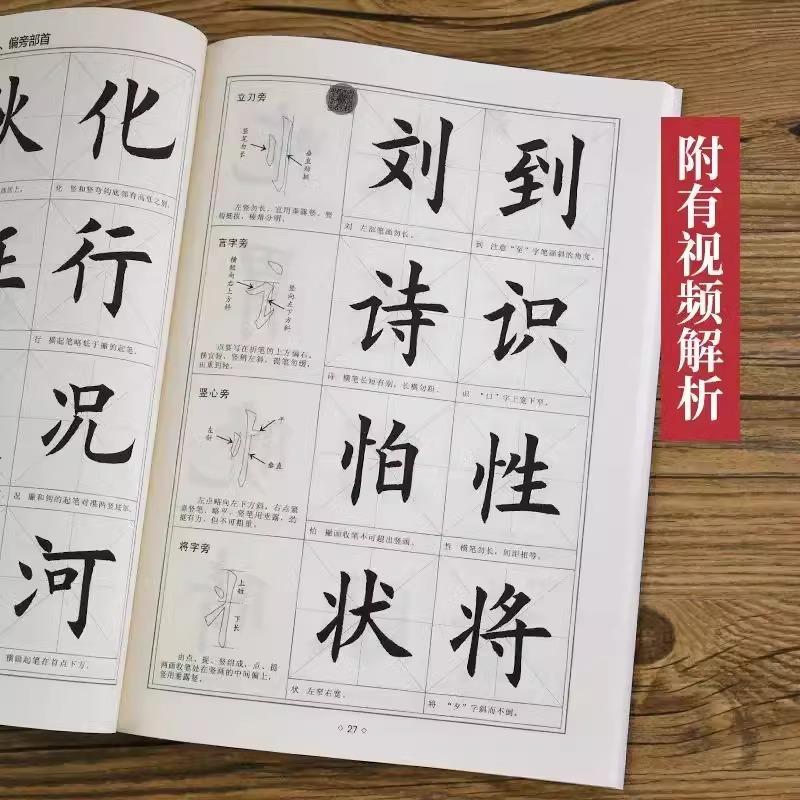 、偏旁部首
化
化 竖和竖弯钩底部有高低之别。
行
行 横起笔略低于撇的起笔。
况
况 撇和钩的起笔对准两竖底部。
河
横画起笔在首点下方。
立刀旁
竖笔勿长
垂直劲挺
左竖勿长，宜用垂露竖，竖
钩挺拔，棱角分明。
刘
刘 左部笔画勿长。
到
到 注意“至”字笔画斜的角度。
言字旁
横短向右上方斜
竖向左下方斜
点要写在折笔的上方偏右，
横宜短，竖稍左斜，提笔勿缓，
由重到轻。
诗
诗 横笔长短有别，长横勿粗。
识
识 “口”字上宽下窄。
竖心旁
左斜
平
垂直
左点略向左下方斜，右点紧
靠竖笔、略平，竖笔用垂露，劲
挺有力，但不可粗重。
怕
怕 撇画收笔不可超出竖画。
性
性 横笔勿长，间距相等。
将字旁
上短
下长
由点、提、竖组成，点、提
两画收笔处在竖画的中间偏上，
竖用垂露竖。
状
状 左窄右宽。
将
将 “夕”字斜而不倒。
27
附有视频解析